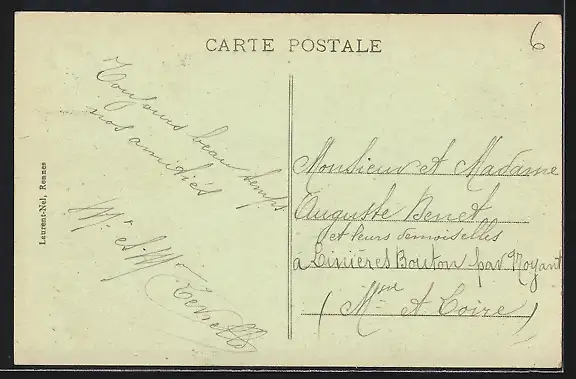 CARTE POSTALE
6
Toujours beau temps
nos amitiés
Mr et Mme
Laurent-Nel, Rennes
Monsieur et Madame
Auguste Benet
et leurs demoiselles
à Linières Bouton par Noyant
(Mne et Loire)